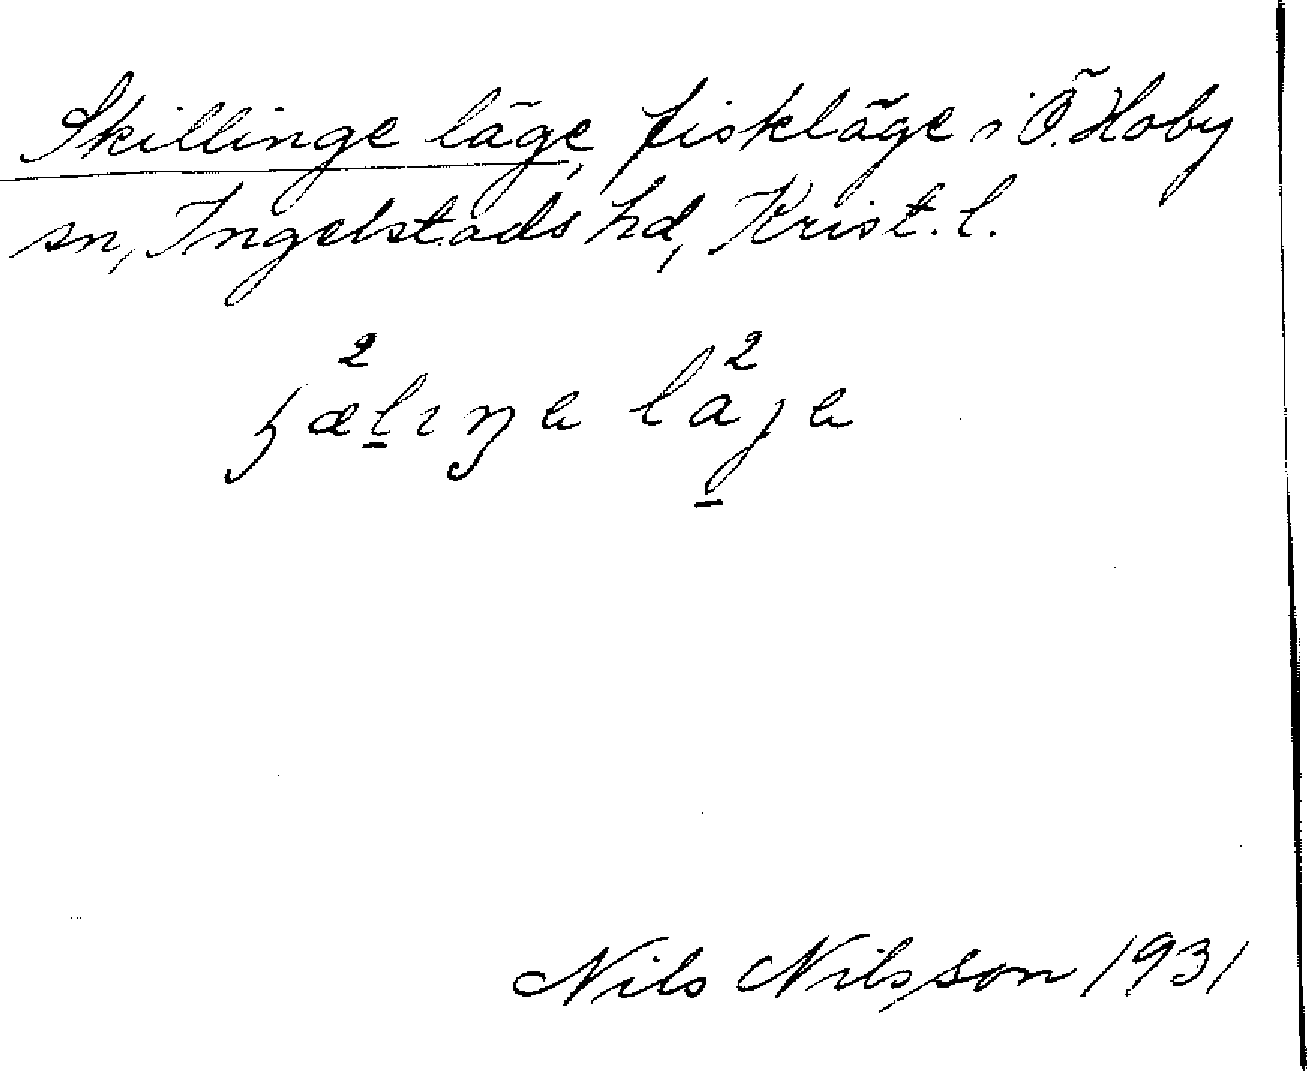 Skillinge läge, fiskläge i Ö. Hoby
sn, Ingelstads hd, Krist. l.
Nils Nilsson 1931